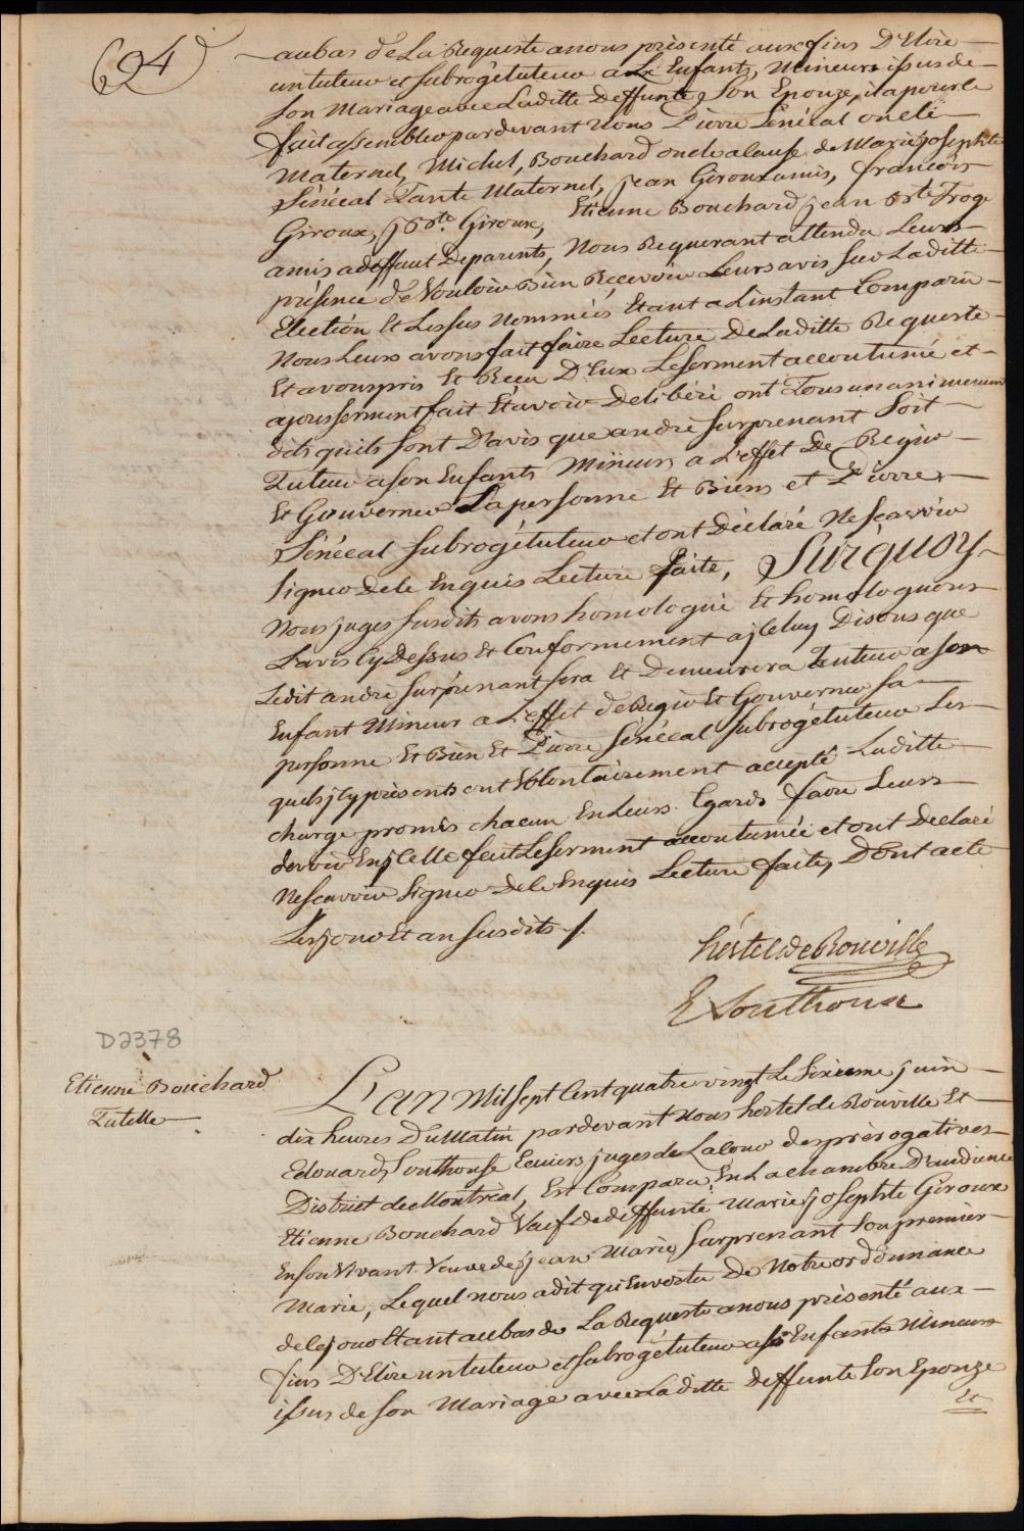 94
aubas de La Requeste anous présenté aux fins D'Elire
untuteur et subrogétuteur a Enfants, Mineurs issus de
Son Mariage avec Laditte Deffunte Son Epouze, il a pour le
fait assembler pardevant Nous Pierre Sénécal oncle
Maternel, Michel, Bouchard oncle acause de Marie josephte
Sénécal Tante Maternel, jean Giroux amis, francois
Giroux, j Bte Giroux, Etienne Bouchard jean Bte Froge
amis adeffaut Deparents, Nous Requerant attendu Leurs
présence de Vouloir Bien Recevoir Leurs avis sur Laditte
Election Et Lessus Nommées Etant a Linstant Comparu
Nous Leurs avons fait faire Lecture De Laditte Requeste
Et avons pris Et Recu D'Eux Leserment accoutumé et
apres serment fait Etavoir Delibéré ont Tous unanimement
dit quils sont D'avis que andré Surprenant Soit
Tuteur a son Enfants Mineurs a L'effet De Regir
Et Gouverner La personne Et Biens et Pierre
Sénécal subrogétuteur et ont Déclaré Nescavoir
signer De ce Enquis Lecture faite, Surquoy
Nous juges susdits avons homologué Et homologuons
Lavis Cy Dessus Et Conformement ajceluy Disons que
Ledit andré Surprenant sera Et Demeurera Tuteur a son
Enfant Mineur a L'effet de Regir Et Gouverner sa
personne Et Bien Et Pierre Sénécal Subrogétuteur Les
quels jcy présents ont Volontairement accepté Laditte
charge promis chacun En Leurs Egards faire Leurs
devoir Enjcelle fait Leserment accoutumée et ont Declaré
Nescavoir signer De ce Enquis Lecture faite, Dont acte
Les jour Et an susdits /.
hertel de Rouville
E Southouse
D2378
Etienne Bouchard
Tutelle
L'an Mil sept Cent quatre vingt Le Sixieme juin
dix heures Du Matin pardevant Nous hertel de Rouville Et
Edouard, Southouse Ecuiers juges de La Cour des prérogatives
District de Montréal, Est Comparu, En La chambre D'audience
Etienne Bouchard Veuf de deffunte Marie josephte Giroux
En son Vivant Veuve de jean Marie Surprenant son premier
Marie, Lequel nous a dit qu'En vertu De Notre ordonnance
de ce jour Etant au bas de La Requeste anous présenté aux
fins D'Elire untuteur et subrogétuteur a ses Enfants Mineurs
issus de son Mariage avec Laditte Deffunte Son Epouze
Et